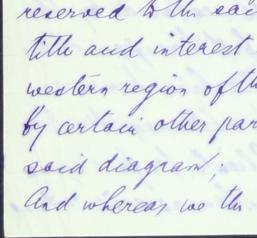 reserved to the sai
title and interest
western region of th
by certain other par
said diagram,
And whereas we th